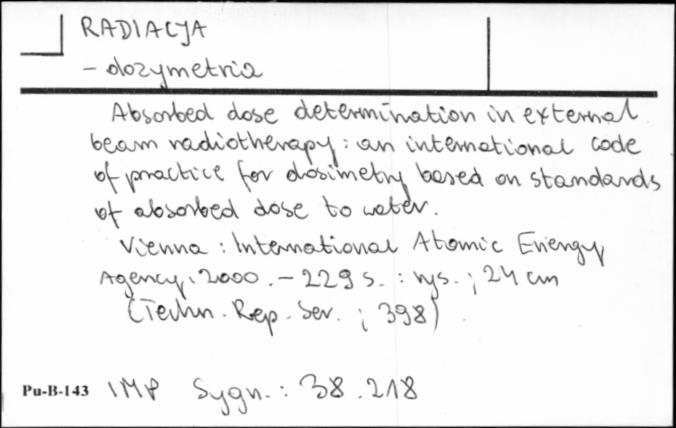 RADIACJA
- dozymetria
Absorbed dose determination in external
beam radiotherapy : an international code
of practice for dosimetry based on standards
of absorbed dose to water.
Vienna : International Atomic Energy
Agency, 2000. - 229 s. : rys. ; 24 cm
(Techn. Rep. Ser. ; 398)
Pu-B-143 IMP Sygn. : 38.218